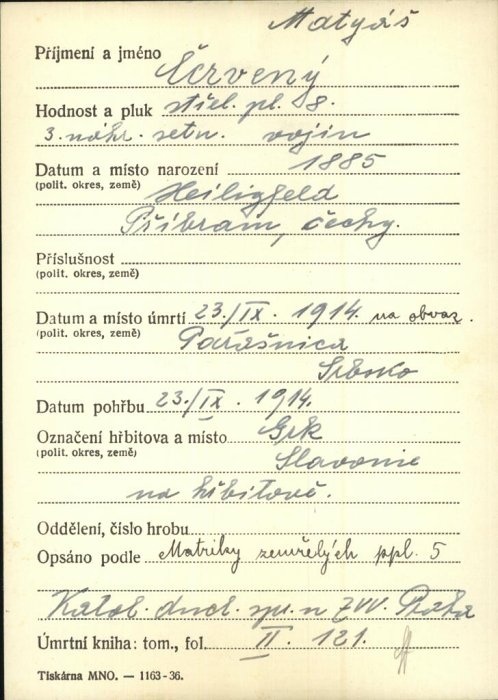 Matyáš
Příjmení a jméno Červený
Hodnost a pluk střel. pl. 8.
3. náhr. setn. vojín
Datum a místo narození 1885
(polit. okres, země) Heiligfeld
Příbram, Čechy.
Příslušnost
(polit. okres, země)
Datum a místo úmrtí 23./IX. 1914. na obvaz.
(polit. okres, země) Parášnica
Srbsko
Datum pohřbu 23./IX. 1914.
Označení hřbitova a místo Grk
(polit. okres, země) Slavonie
na hřbitově.
Oddělení, číslo hrobu
Opsáno podle Matriky zemřelých ppl. 5
Katol. duch. sp. u ZVV. Praha
Úmrtní kniha: tom., fol. II. 121.
Tiskárna MNO. — 1163-36.